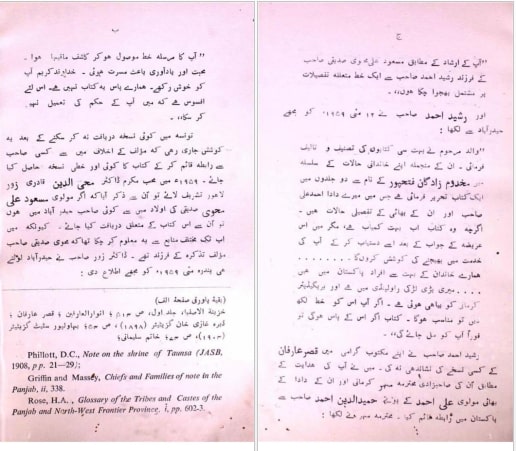 ب
”آپ کا مرسلہ خط موصول ہو کر کاشف مافیہا ہوا ۔
محبت اور یادآوری باعث مسرت ہوئی ۔ خداوند کریم آپ
کو خوش رکھے۔ ہمارے پاس یہ کتاب نہیں ہے۔ اس لئے
افسوس ہے کہ میں آپ کے حکم کی تعمیل نہیں
کر سکا“۔
تونسہ میں کوئی نسخہ دریافت نہ کر سکنے کے بعد یہ
کوشش جاری رھی کہ مؤلف کے اخلاف میں سے کسی صاحب
سے رابطہ قائم کر کے کتاب کا کوئی اور خطی نسخہ حاصل کیا
جائے ۔ ۱۹۵۹ء میں محب مکرم ڈاکٹر محی الدین قادری زور
لاھور تشریف لائے تو ان سے ذکر آیا کہ اگر مولوی مسعود علی
محوی صدیقی کی اولاد میں سے کوئی صاحب حیدر آباد میں ھوں
تو ان سے اس کتاب کے متعلق دریافت کیا جائے ۔ کیونکہ میں
اب تک مختلف منابع سے یہ معلوم کر چکا تھا کہ محوی صدیقی صاحب
مؤلف تذکرہ کے فرزند تھے ۔ ڈاکٹر زور صاحب نے حیدرآباد لوٹتے
ھی پندرہ مئی ۱۹۵۹ء کو مجھے اطلاع دی :
(بقیہ پاورقی صفحہ الف)
خزینۃ الاصفیاء جلد اول، ص
ڈیرہ غازی خان گزیٹیئر (۱۸۹۸)، ص
Phillott, D.C., Note on the shrine of Taunsa (JASB,
1908, pp. 21—29);
Griffin and Massey, Chiefs and Families of note in the
Panjab, ii, 338.
Rose, H.A., Glossary of the Tribes and Castes of the
Panjab and North-West Frontier Province, i, pp. 602-3.
ج
”آپ کے ارشاد کے مطابق مسعود علی محوی صدیقی صاحب
کے فرزند رشید احمد صاحب سے ایک خط متعلقہ تفصیلات
پر مشتمل بھجوا چکا ھوں“۔
اور رشید احمد صاحب نے ۱۲ مئی ۱۹۵۹ء کو مجھے
حیدرآباد سے لکھا :
”والد مرحوم نے بہت سی کتابوں کی تصنیف و تالیف
فرمائی ۔ ان کے منجملہ اپنے خاندانی حالات کے سلسلہ
میں مخدوم زادگان فتحپور کے نام سے دو جلدوں میں
ایک کتاب تحریر فرمائی ہے جس میں میرے دادا احمد علی
صاحب اور ان کے بھائی کے تفصیلی حالات ھیں ۔
اگرچہ وہ کتاب اب بہت کمیاب ہے، مگر میں اس
عریضہ کے جواب کے بعد اسے دستیاب کر کے آپ کی
خدمت میں بھیجنے کی کوشش کروں گا ........
ہمارے خاندان کے بہت سے افراد پاکستان میں ھیں
....میری بڑی لڑکی راولپنڈی میں ہے اور بریگیڈیئر
کرمانی کو بیاھی ھوئی ہے ۔ اگر آپ اس کو خط لکھ
دیں تو مناسب ھوگا ۔ کتاب اگر اس کے پاس ھوگی تو
فوراً آپ کو مل جائے گی“۔
رشید احمد صاحب نے اپنے مکتوب گرامی میں قصر عارفاں
کے کسی نسخے کی نشاندھی نہ کی ۔ میں نے آپ کی ھدایت کے
مطابق آن کی صاحبزادی محترمہ مہر کرمانی اور ان کے دادا کے
بھائی مولوی علی احمد کے پوتے حمید الدین احمد صاحب سے
پاکستان میں رابطہ قائم کیا ۔ محترمہ مہر نے لکھا :